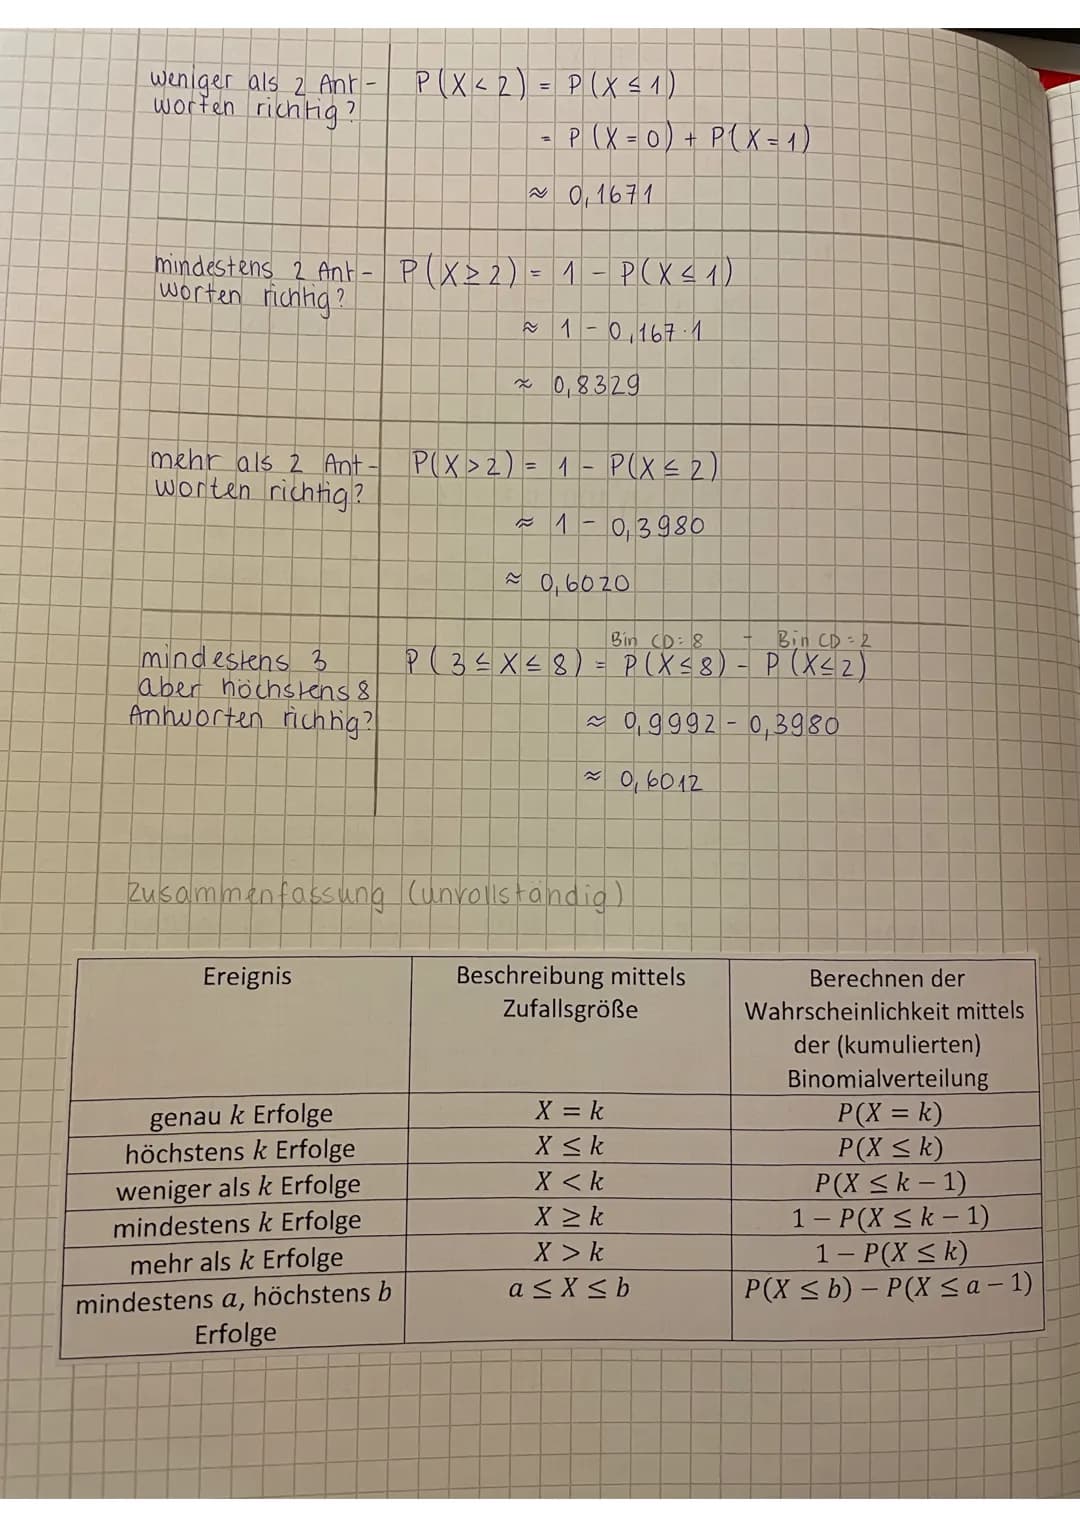 weniger als 2 Ant- P(X < 2) = P(X ≤ 1)
worten richtig?
= P(X = 0) + P(X = 1)
≈ 0,1671
mindestens 2 Ant- P(X ≥ 2) = 1 - P(X ≤ 1)
worten richtig?
≈ 1 - 0,167·1
≈ 0,8329
mehr als 2 Ant- P(X > 2) = 1 - P(X ≤ 2)
worten richtig?
≈ 1 - 0,3980
≈ 0,6020
Bin CD: 8 - Bin CD = 2
mindestens 3 P(3 ≤ X ≤ 8) = P(X ≤ 8) - P(X ≤ 2)
aber höchstens 8
Antworten richtig? ≈ 0,9992 - 0,3980
≈ 0,6012
Zusammenfassung (unvollständig)
Ereignis
Beschreibung mittels
Zufallsgröße
Berechnen der
Wahrscheinlichkeit mittels
der (kumulierten)
Binomialverteilung
genau k Erfolge X = k P(X = k)
höchstens k Erfolge X ≤ k P(X ≤ k)
weniger als k Erfolge X < k P(X ≤ k − 1)
mindestens k Erfolge X ≥ k 1 − P(X ≤ k − 1)
mehr als k Erfolge X > k 1 − P(X ≤ k)
mindestens a, höchstens b a ≤ X ≤ b P(X ≤ b) − P(X ≤ a − 1)
Erfolge